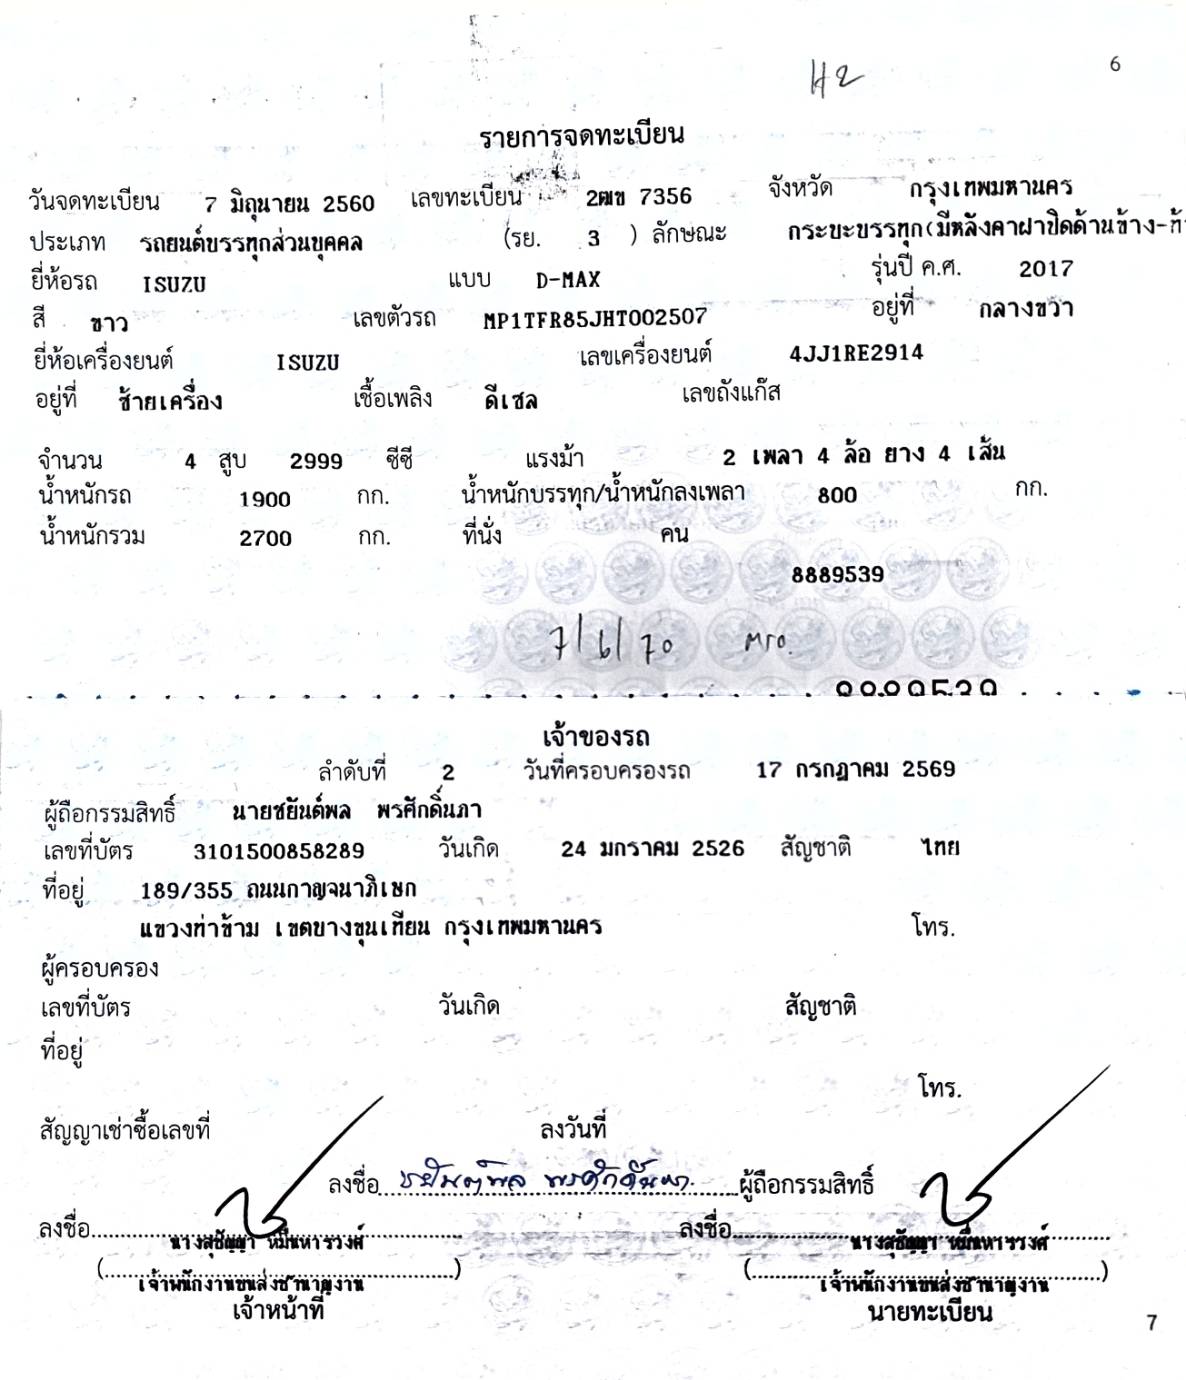 H2
6
รายการจดทะเบียน
วันจดทะเบียน 7 มิถุนายน 2560 เลขทะเบียน 2ฒข 7356 จังหวัด กรุงเทพมหานคร
ประเภท รถยนต์บรรทุกส่วนบุคคล (รย. 3 ) ลักษณะ กระบะบรรทุก(มีหลังคาฝาปิดด้านข้าง-ท้า
ยี่ห้อรถ ISUZU แบบ D-MAX รุ่นปี ค.ศ. 2017
สี ขาว เลขตัวรถ MP1TFR85JHT002507 อยู่ที่ กลางขวา
ยี่ห้อเครื่องยนต์ ISUZU เลขเครื่องยนต์ 4JJ1RE2914
อยู่ที่ ซ้ายเครื่อง เชื้อเพลิง ดีเซล เลขถังแก๊ส
จำนวน 4 สูบ 2999 ซีซี แรงม้า 2 เพลา 4 ล้อ ยาง 4 เส้น
น้ำหนักรถ 1900 กก. น้ำหนักบรรทุก/น้ำหนักลงเพลา 800 กก.
น้ำหนักรวม 2700 กก. ที่นั่ง คน
8889539
7/6/70
8889539
เจ้าของรถ
ลำดับที่ 2 วันที่ครอบครองรถ 17 กรกฎาคม 2569
ผู้ถือกรรมสิทธิ์ นายชยันต์พล พรศักดิ์นภา
เลขที่บัตร 3101500858289 วันเกิด 24 มกราคม 2526 สัญชาติ ไทย
ที่อยู่ 189/355 ถนนกาญจนาภิเษก
แขวงท่าข้าม เขตบางขุนเทียน กรุงเทพมหานคร โทร.
ผู้ครอบครอง
เลขที่บัตร วันเกิด สัญชาติ
ที่อยู่
โทร.
สัญญาเช่าซื้อเลขที่ ลงวันที่
ลงชื่อ ชยันต์พล พรศักดิ์นภา ผู้ถือกรรมสิทธิ์
ลงชื่อ ลงชื่อ
นางสุชัญญา หมื่นหารวงศ์ นางสุชัญญา หมื่นหารวงศ์
(เจ้าพนักงานขนส่งชำนาญงาน) (เจ้าพนักงานขนส่งชำนาญงาน)
เจ้าหน้าที่ นายทะเบียน
7